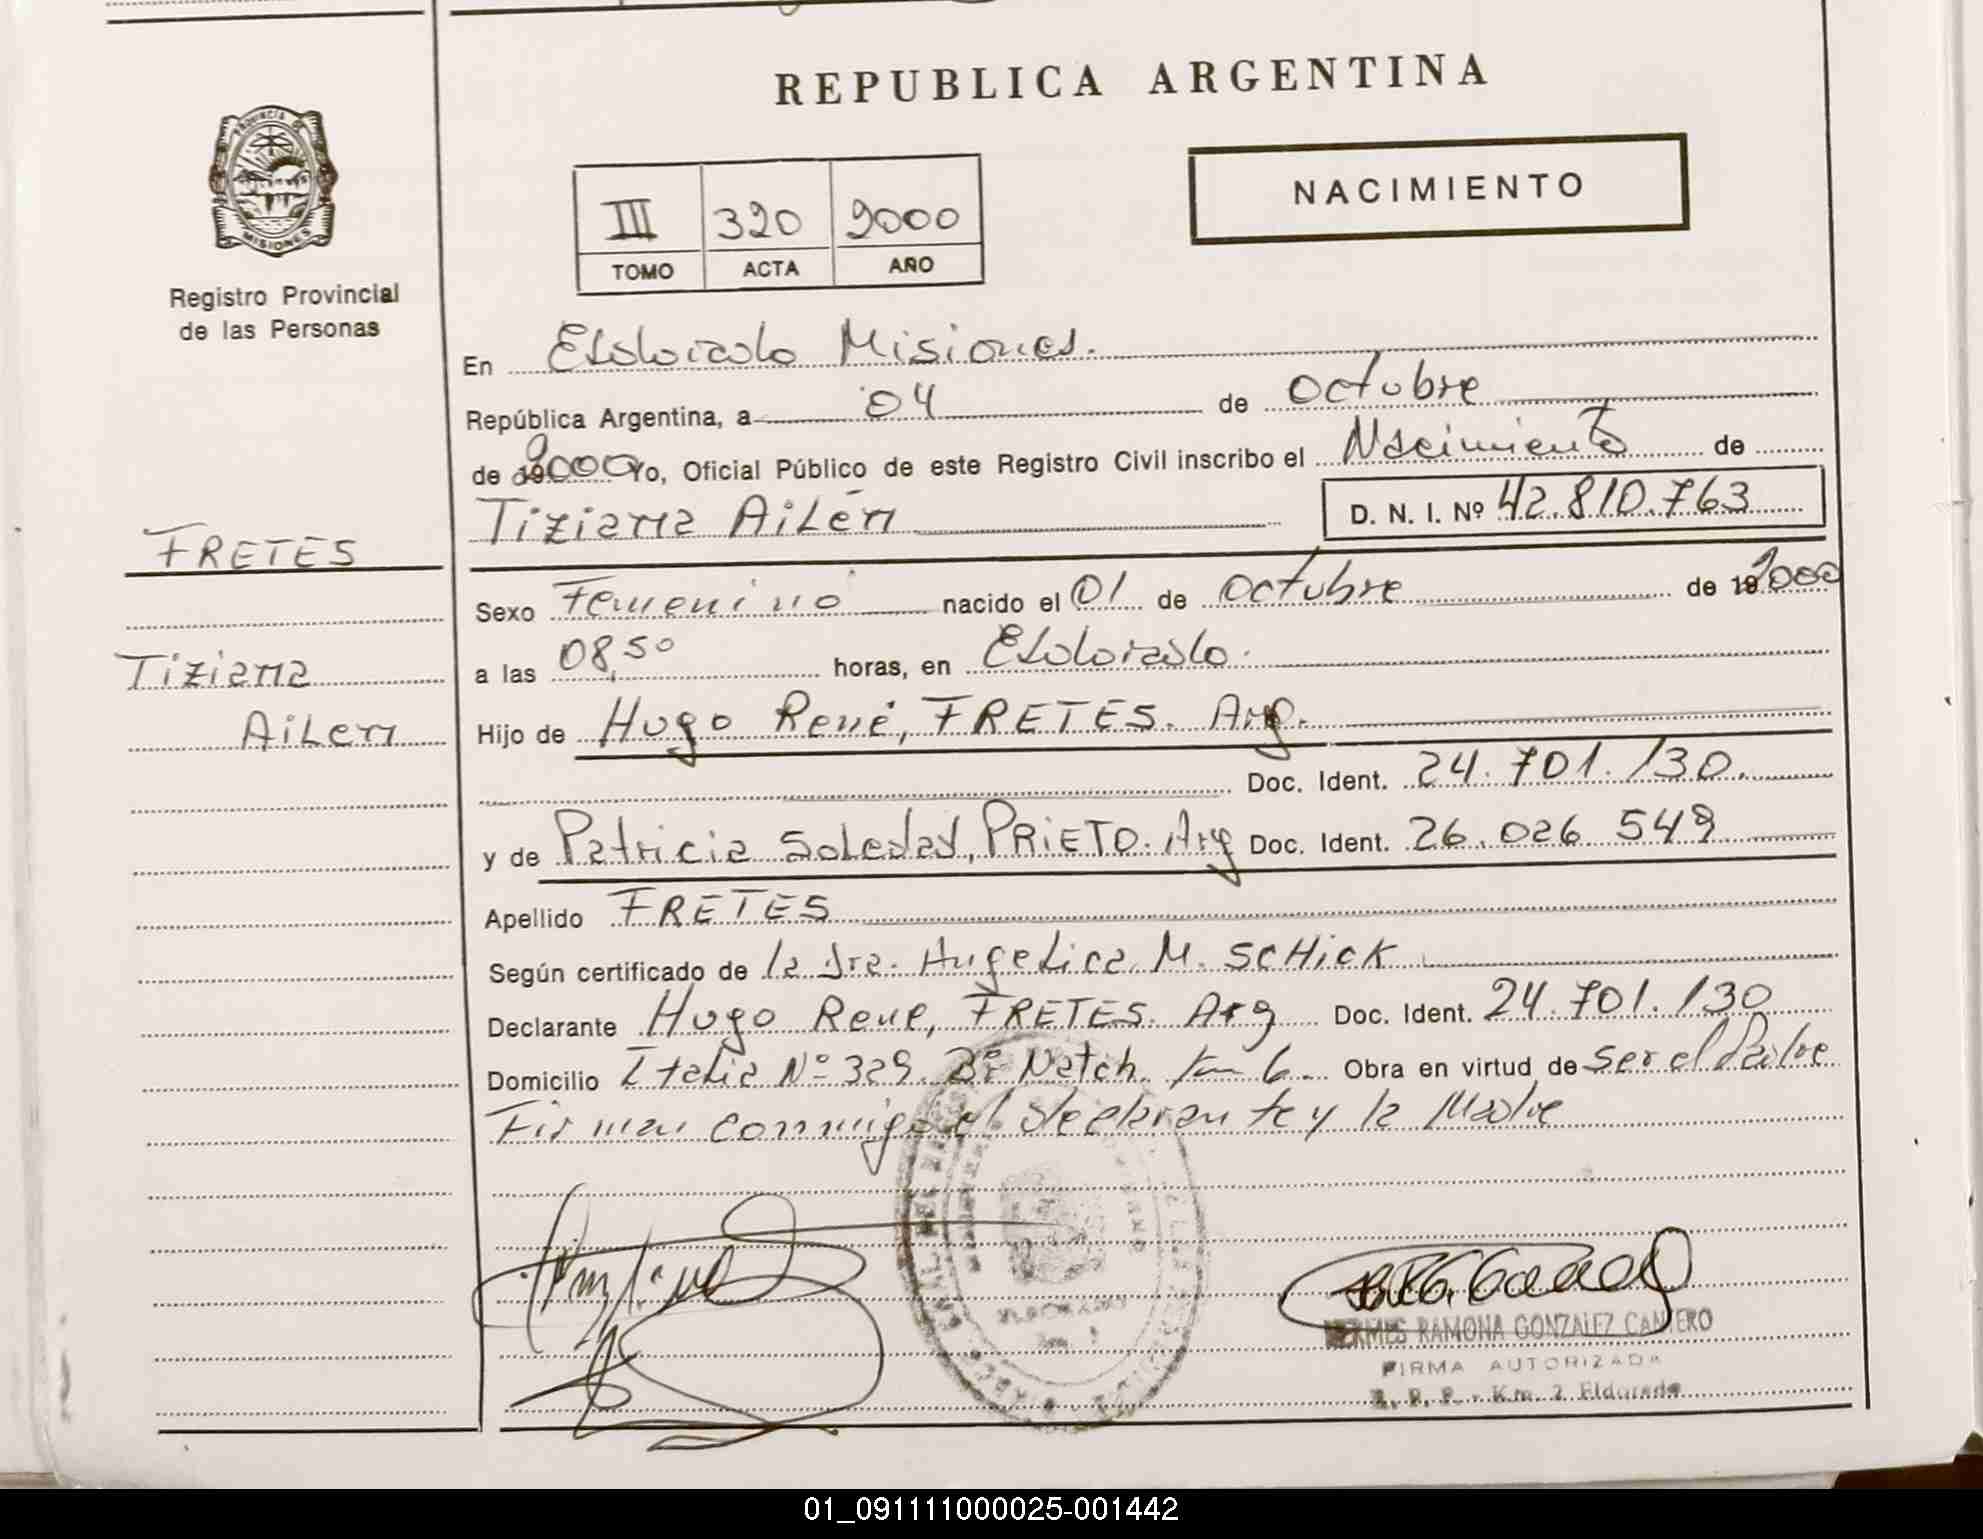 REPUBLICA ARGENTINA
PROVINCIA DE
MISIONES
Registro Provincial
de las Personas
NACIMIENTO
III 320 2000
TOMO ACTA AÑO
En Eldorado Misiones.
República Argentina, a 04 de octubre
de 2000 Yo, Oficial Público de este Registro Civil inscribo el Nacimiento de
Tiziana Ailén D. N. I. Nº 42.810.763
FRETES
Tiziana
Ailen
Sexo Femenino nacido el 01 de octubre de 2000
a las 08,50 horas, en Eldorado.
Hijo de Hugo René, FRETES. Arg.
Doc. Ident. 24.701.130.
y de Patricia Soledad, PRIETO. Arg Doc. Ident. 26.026.549
Apellido FRETES
Según certificado de la Dra. Angelica M. SCHICK
Declarante Hugo Rene, FRETES. Arg Doc. Ident. 24.701.130
Domicilio Italia Nº 329. Bº Km 6. Obra en virtud de ser el Padre
Firman conmigo el declarante y la Madre
HERMES RAMONA GONZALEZ CANTERO
FIRMA AUTORIZADA
R. P. P. - Km. 2 Eldorado
01_091111000025-001442